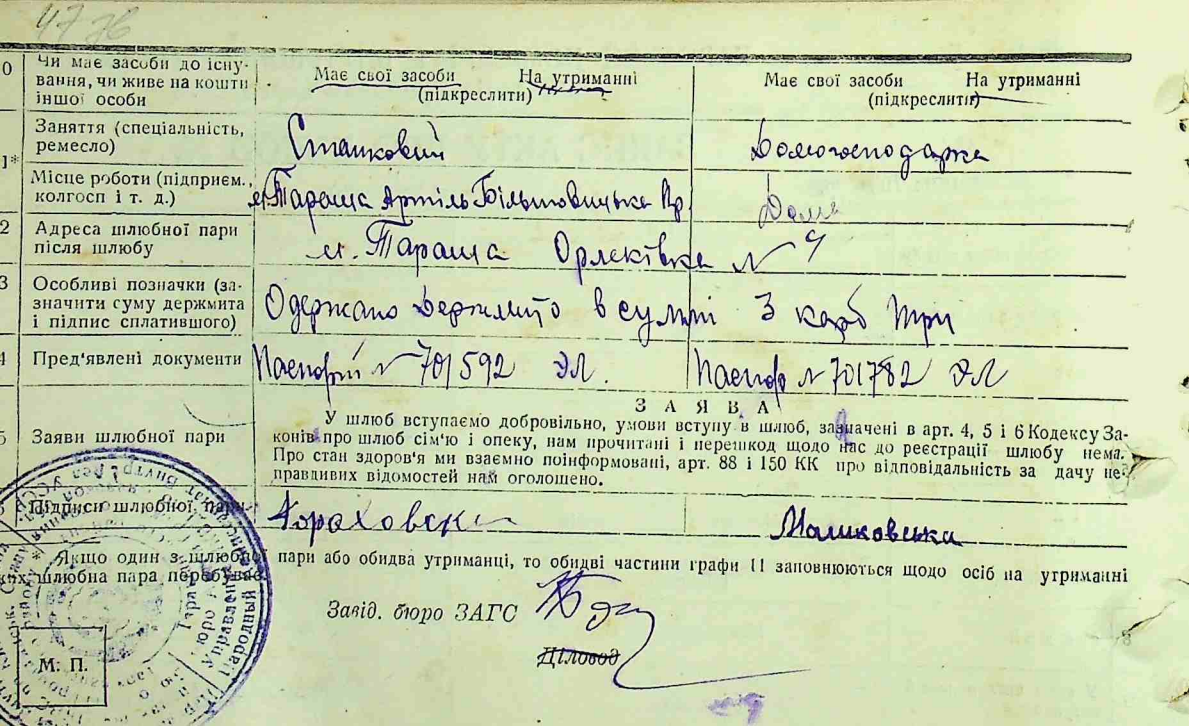 47 зв
0 Чи має засоби до існу-
вання, чи живе на кошти
іншої особи
Має свої засоби На утриманні
(підкреслити)
Має свої засоби На утриманні
(підкреслити)
1* Заняття (спеціальність,
ремесло)
Домогосподарка
Місце роботи (підприєм.,
колгосп і т. д.)
м. Тараща Артіль
Дома
2 Адреса шлюбної пари
після шлюбу
м. Тараща
3 Особливі позначки (за-
значити суму держмита
і підпис сплатившого)
Одержано Держмито в суммі 3 карб три
4 Пред'явлені документи
Паспорт № 701592 ЭЛ.
Паспор № 701782 ЭЛ
5 Заяви шлюбної пари
ЗАЯВА
У шлюб вступаємо добровільно, умови вступу в шлюб, зазначені в арт. 4, 5 і 6 Кодексу За-
конів про шлюб сім'ю і опеку, нам прочитані і перешкод щодо нас до реєстрації шлюбу нема.
Про стан здоров'я ми взаємно поінформовані, арт. 88 і 150 КК про відповідальність за дачу не-
правдивих відомостей нам оголошено.
Підписи шлюбної пари
Машковська
* Якщо один з шлюбної пари або обидва утриманці, то обидві частини графи 11 заповнюються щодо осіб на утриманні
ких шлюбна пара перебуває.
Завід. бюро ЗАГС
Діловод
М. П.